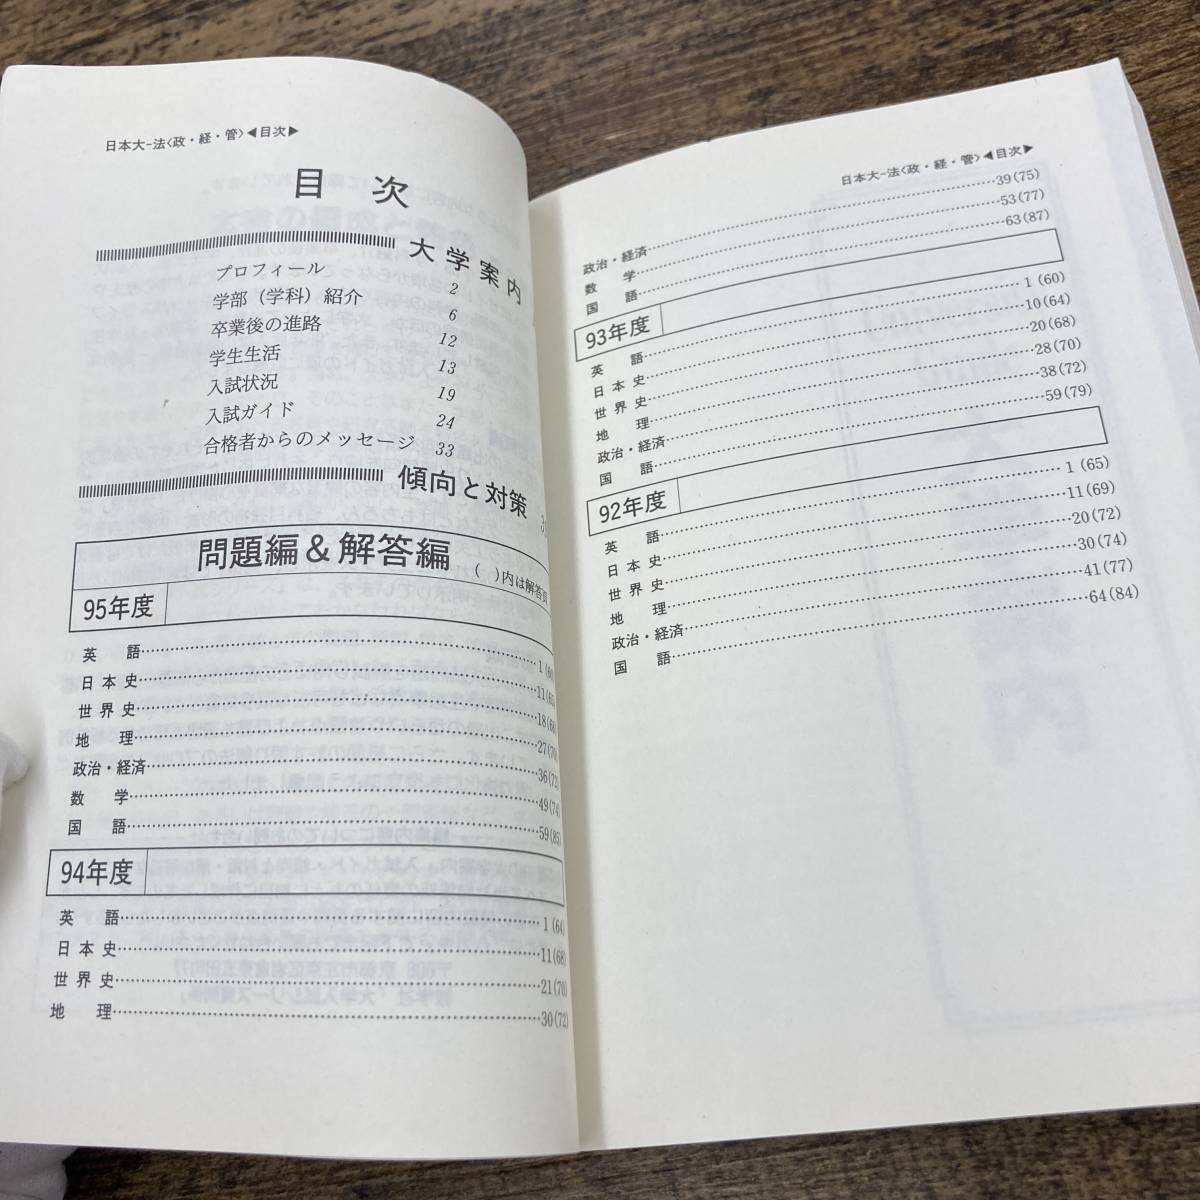 日本大-法〈政・経・管〉◀目次▶
目 次
大学案内
プロフィール 2
学部（学科）紹介 6
卒業後の進路 12
学生生活 13
入試状況 19
入試ガイド 24
合格者からのメッセージ 33
傾向と対策
問題編＆解答編 （ ）内は解答頁
95年度
英語 1(60)
日本史 11(65)
世界史 18(68)
地理 27(70)
政治・経済 36(72)
数学 49(74)
国語 59(85)
94年度
英語 1(64)
日本史 11(68)
世界史 21(70)
地理 30(72)
日本大-法〈政・経・管〉◀目次▶
政治・経済 39(75)
数学 53(77)
国語 63(87)
93年度
英語 1(60)
日本史 10(64)
世界史 20(68)
地理 28(70)
政治・経済 38(72)
国語 59(79)
92年度
英語 1(65)
日本史 11(69)
世界史 20(72)
地理 30(74)
政治・経済 41(77)
国語 64(84)